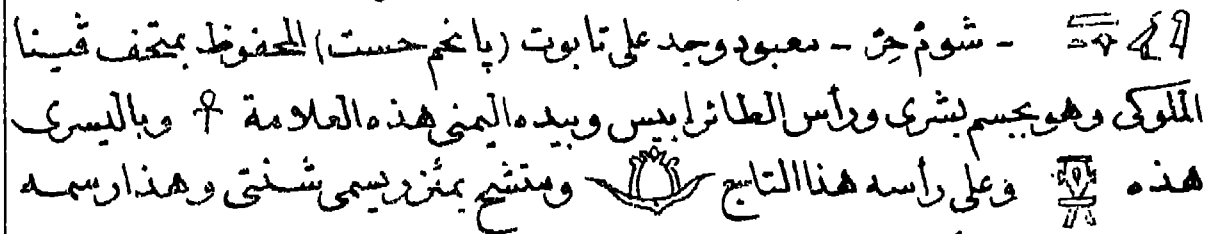 - شومُ حِرْ - معبود وجد على تابوت (پانخم حست) المحفوظ بمتحف ڤينا
الملوكى وهو بجسم بشرى ورأس الطائر ابيس وبيده اليمنى هذه العلامة ☥ وباليسرى
هذه وعلى رأسه هذا التاج ومتشح بمئزر يسمى شنتى وهذا رسمه